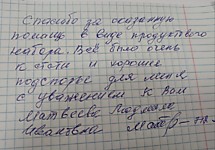 Спасибо за оказанную
помощь в виде продуктового
набора. Всё было очень
к стати и хорошее
подспорье для меня
с уважением к Вам
Матвеева Людмила
Ивановна